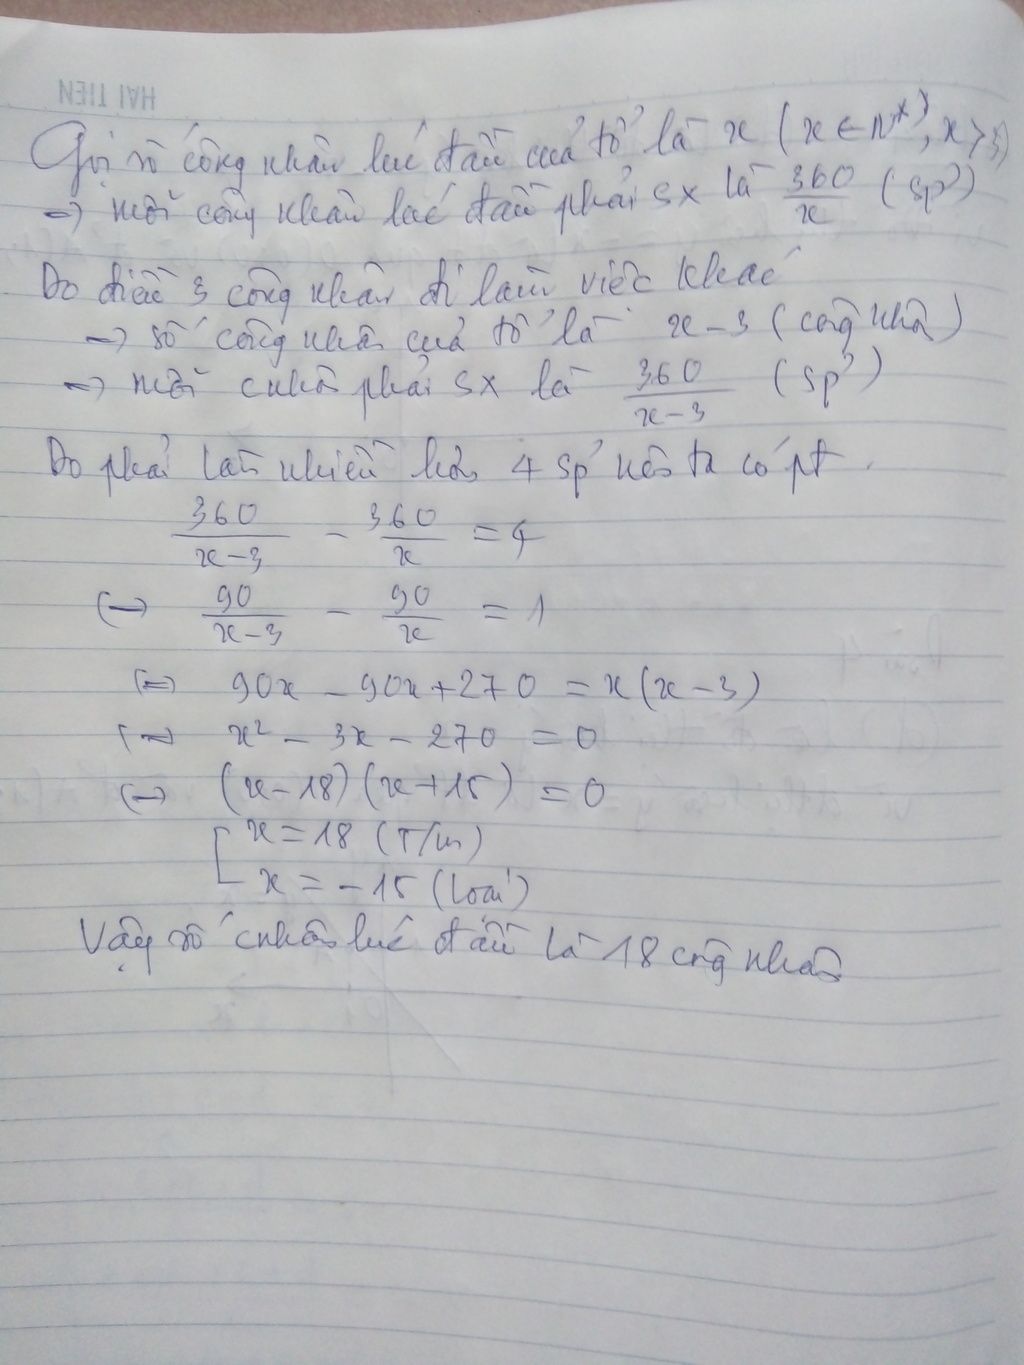 HẢI TIẾN
Gọi số công nhân lúc đầu của tổ là x (x ∈ N*, x > 3)
=> mỗi công nhân lúc đầu phải sx là 360/x (sp)
Do điều 3 công nhân đi làm việc khác
=> số công nhân của tổ là x - 3 (công nhân)
=> mỗi cnhân phải sx là 360/(x-3) (sp)
Do phải làm nhiều hơn 4 sp nên ta có pt
360/(x-3) - 360/x = 4
<=> 90/(x-3) - 90/x = 1
<=> 90x - 90x + 270 = x(x-3)
<=> x² - 3x - 270 = 0
<=> (x-18)(x+15) = 0
[ x = 18 (T/m)
x = -15 (loại)
Vậy số cnhân lúc đầu là 18 công nhân